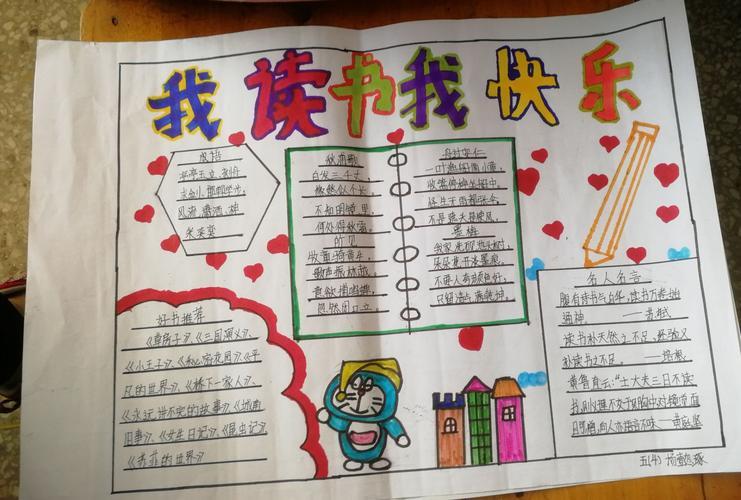 我读书我快乐
成语
亭亭玉立、
邯郸学步、
风流潇洒、神
采奕奕
秋浦歌
白发三千丈，
缘愁似个长。
不知明镜里，
何处得秋霜。
所见
牧童骑黄牛，
歌声振林樾。
意欲捕鸣蝉，
忽然闭口立。
舟过安仁
一叶渔船两小童，
收篙停棹坐船中。
怪生无雨都张伞，
不是遮头是使风。
墨梅
我家洗砚池头树，
朵朵花开淡墨痕。
不要人夸颜色好，
只留清气满乾坤。
好书推荐
《草房子》、《三国演义》、
《小王子》、《秘密花园》、《平
凡的世界》、《桥下一家人》、
《永远讲不完的故事》《城南
旧事》、《女生日记》、《昆虫记》
《苏菲的世界》
名人名言
腹有诗书气自华，读书万卷始
通神。——苏轼
读书补天然之不足，经验又
补读书之不足。——培根
黄鲁直云：“士大夫三日不读
书，则义理不交于胸中，对镜觉面
目可憎，向人亦语言无味。——黄庭坚
五(4)